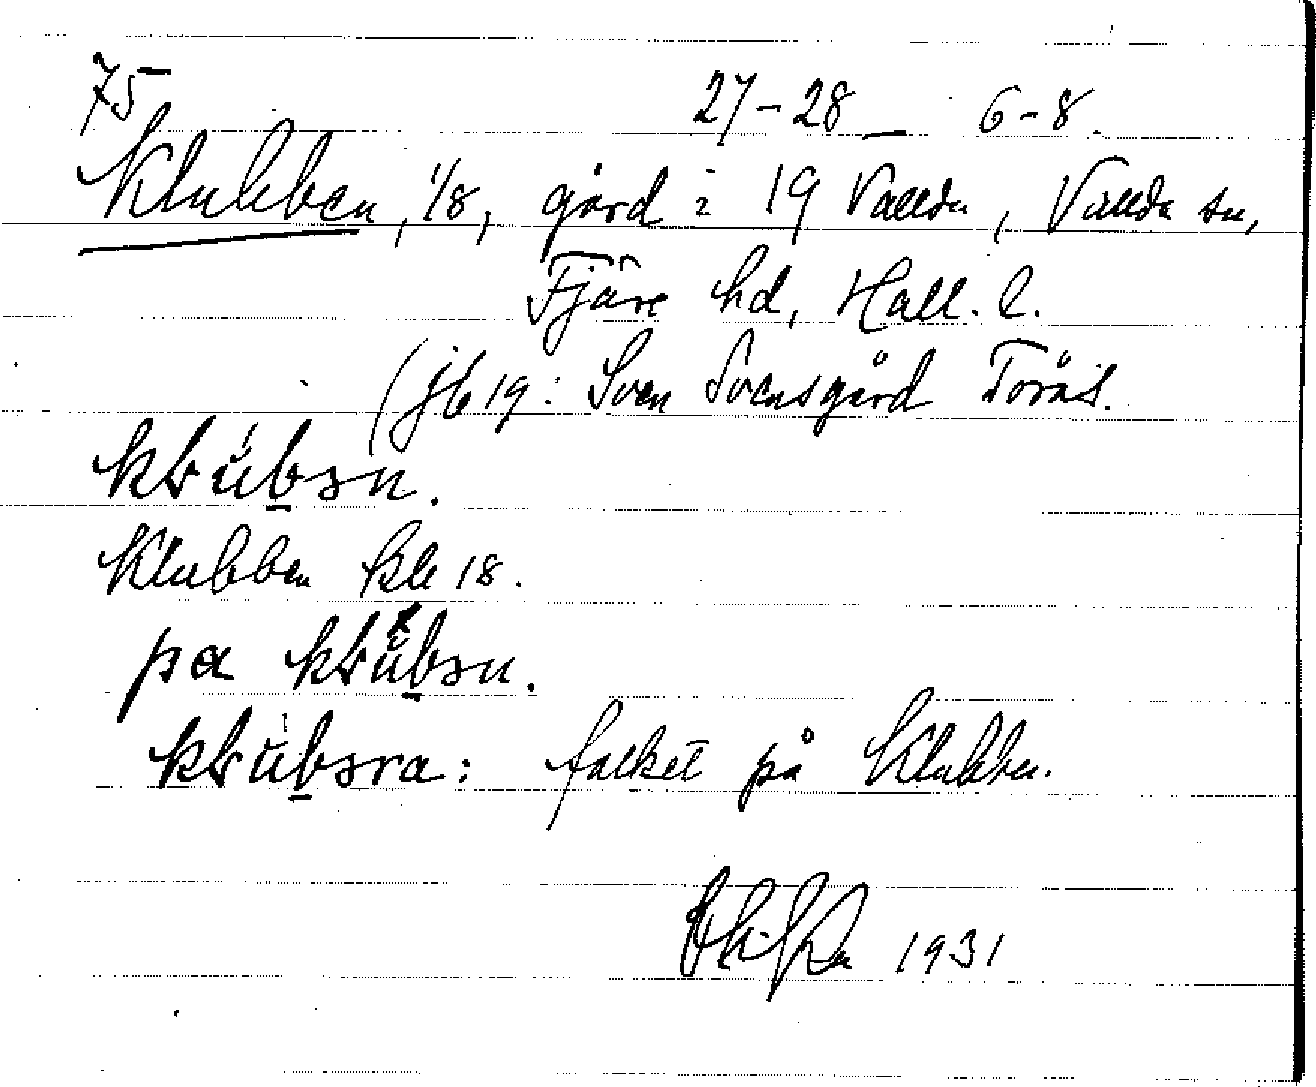 75 27-28 6-8.
Klubben, 1/8, gård i 19 Vallda, Vallda sn,
Fjäre hd, Hall. l.
(jb 19: Sven Svensgård Torås.
Klubben kb 18.
folket på Klubben.
1931